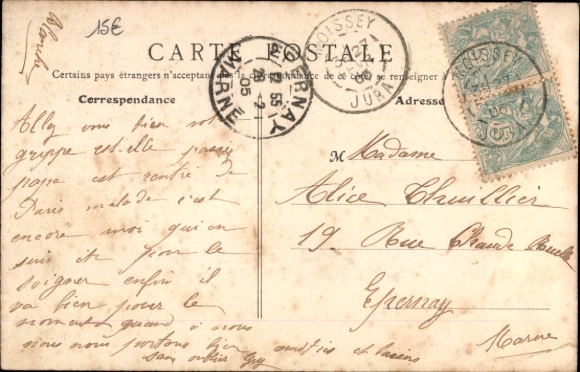 15€
Blanche
CARTE POSTALE
Certains pays étrangers n'acceptant pas la correspondance de ce côté se renseigner à
Correspondance
Adresse
MOISSEY
JURA
EPERNAY
MARNE
MOISSEY
JURA
Allez vous bien votre
grippe est-elle passée
papa est rentré de
Paris malade c'est
encore moi qui en
suis ite pour le
soigner enfin il
va bien pour le
moment quand à nous
nous nous portons bien
amitiés et baisers
sans oublier Guy
M Madame
Alice Thuillier
19 Rue Chaude Ruelle
Epernay
Marne